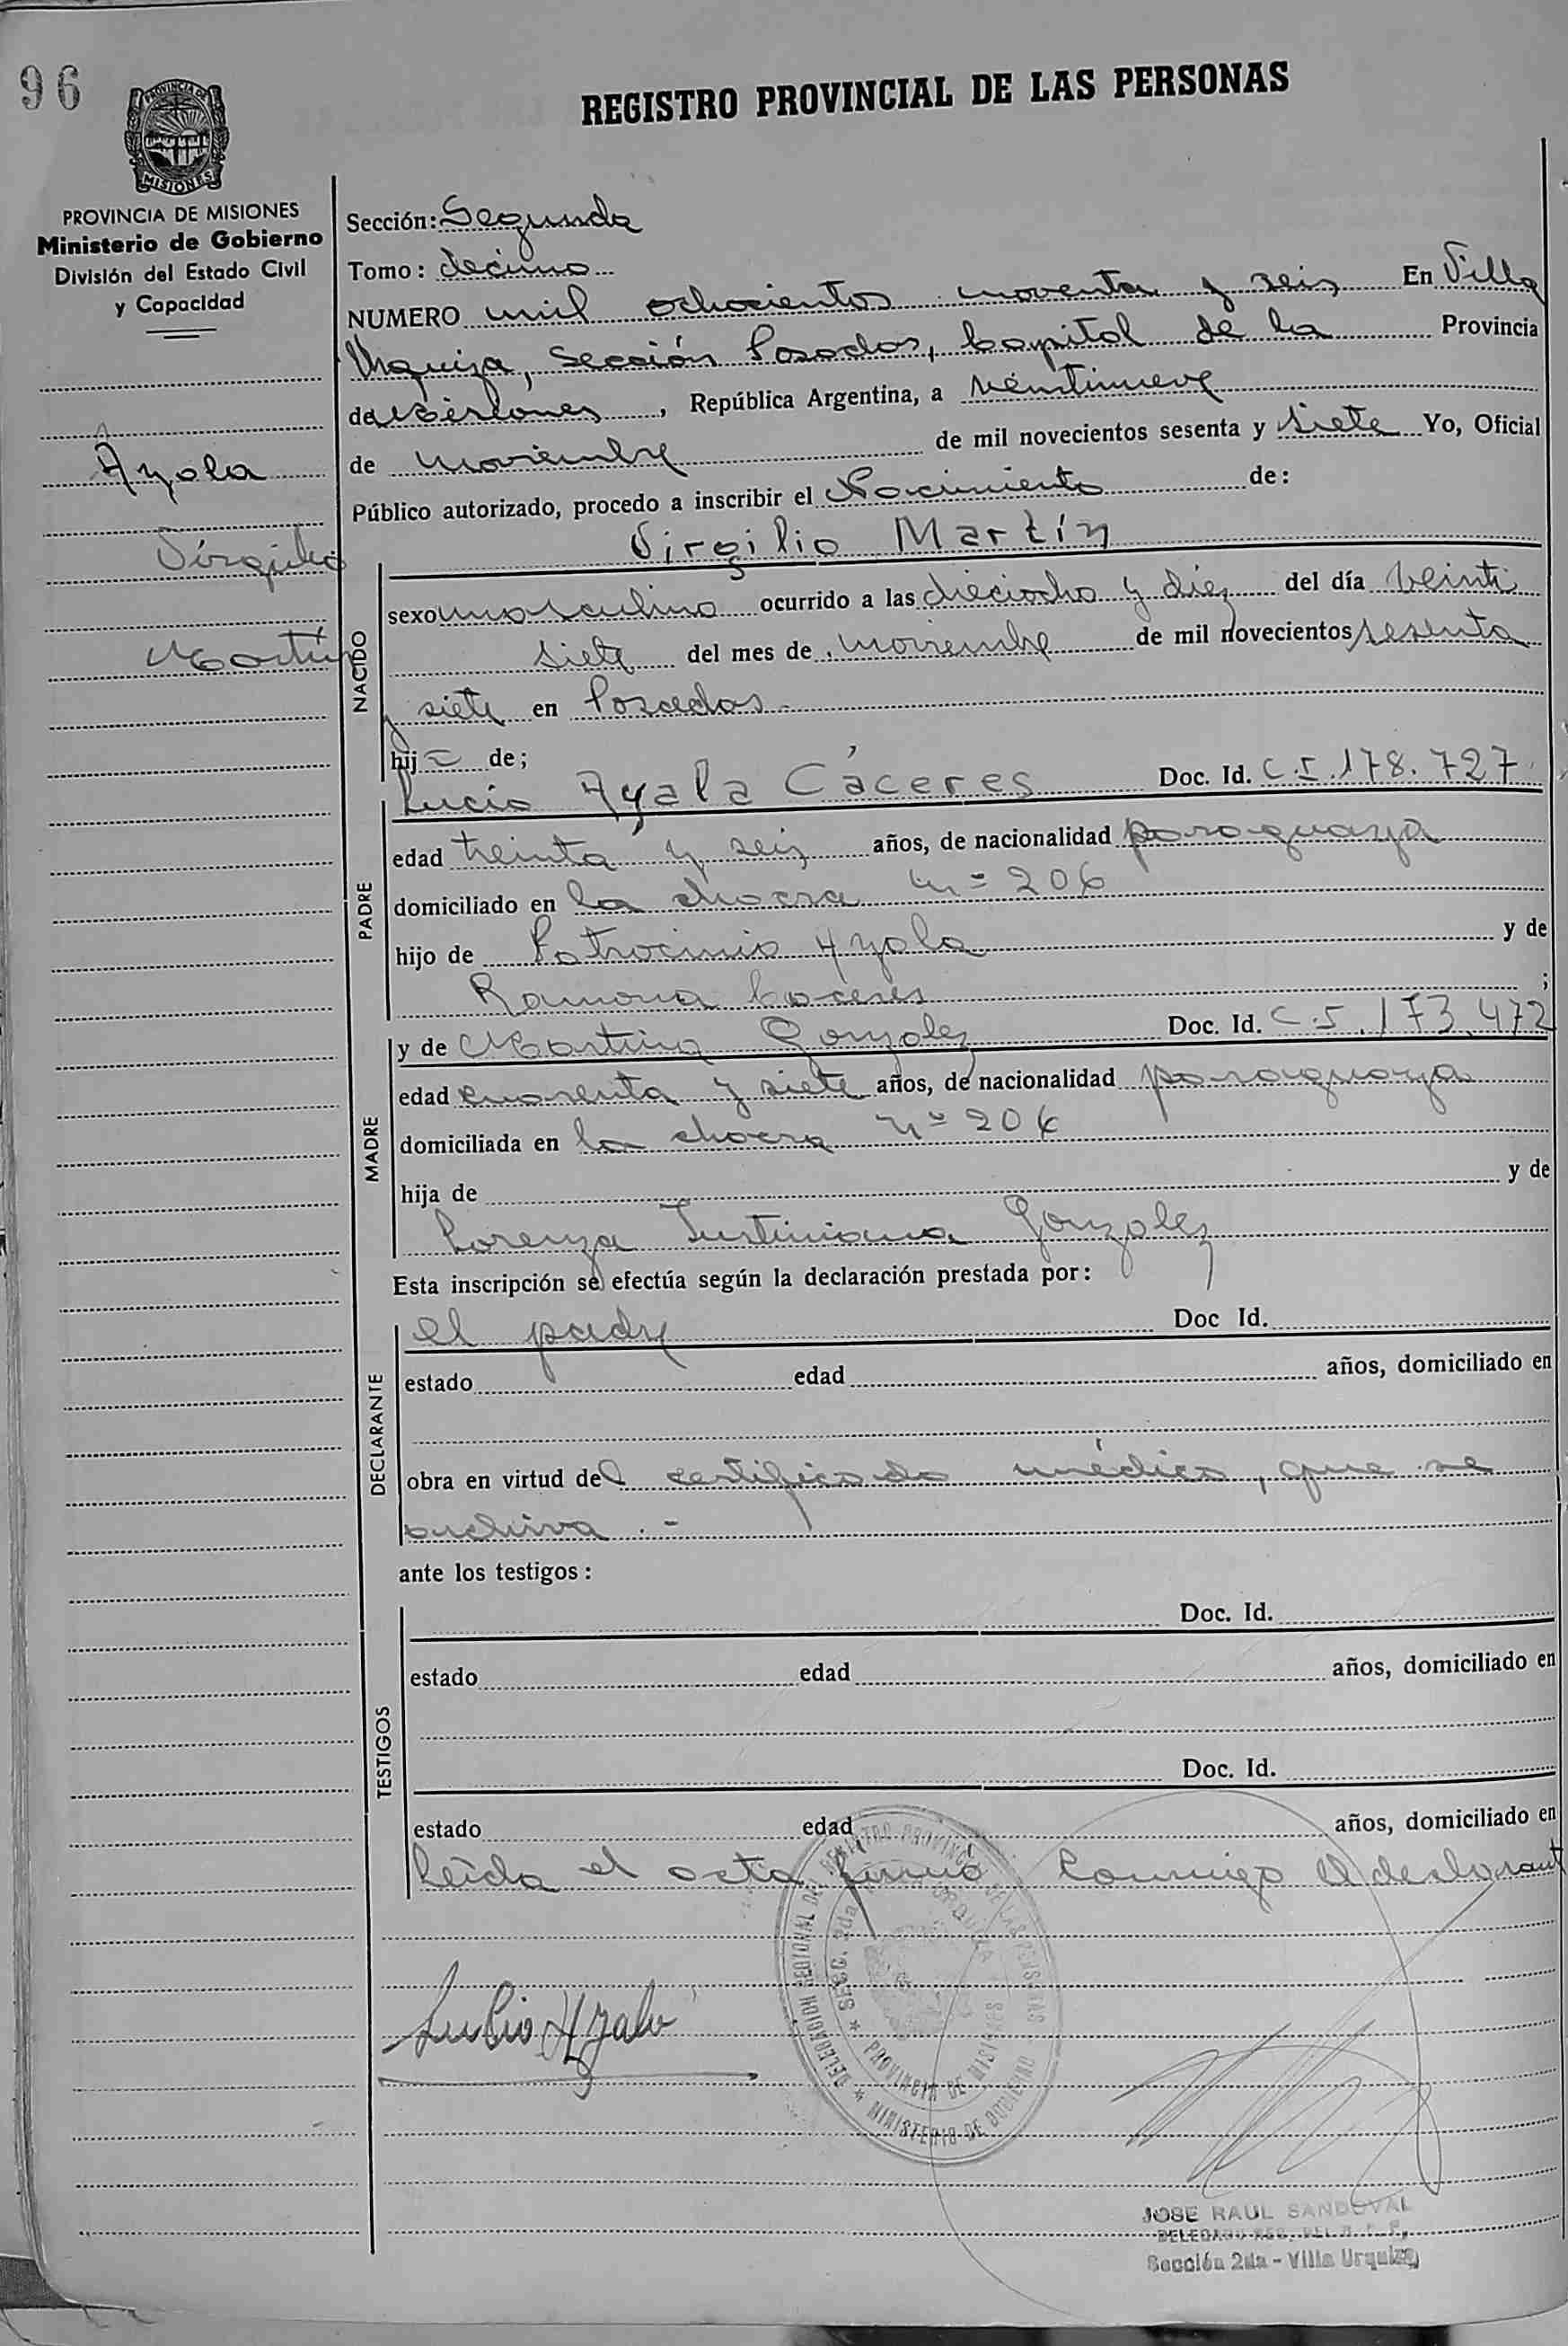 96
REGISTRO PROVINCIAL DE LAS PERSONAS
PROVINCIA DE
MISIONES
PROVINCIA DE MISIONES
Ministerio de Gobierno
División del Estado Civil
y Capacidad
Ayala
Virgilio
Martín
Sección: Segunda
Tomo: decimo
NUMERO mil ochocientos noventa y seis En Villa
Urquiza, Sección Posadas, Capital de la Provincia
de Misiones, República Argentina, a veintinueve
de noviembre de mil novecientos sesenta y siete Yo, Oficial
Público autorizado, procedo a inscribir el Nacimiento de:
Virgilio Martín
NACIDO
sexo masculino ocurrido a las dieciocho y diez del día veinti
siete del mes de noviembre de mil novecientos sesenta
y siete en Posadas.-
hij o de;
PADRE
Lucio Ayala Cáceres Doc. Id. C.I.178.727
edad treinta y seis años, de nacionalidad paraguaya
domiciliado en la chacra nº 206
hijo de Patrocinio Ayala y de
Ramona Caceres ;
MADRE
y de Martina Gonzalez Doc. Id. C.I.173.472
edad cuarenta y siete años, de nacionalidad paraguaya
domiciliada en la chacra nº 206
hija de y de
Lorenza Justiniana Gonzalez
Esta inscripción se efectúa según la declaración prestada por:
DECLARANTE
el padre Doc Id.
estado edad años, domiciliado en
obra en virtud del certificado médico, que se
archiva.-
ante los testigos:
TESTIGOS
Doc. Id.
estado edad años, domiciliado en
Doc. Id.
estado edad años, domiciliado en
Leída el acta firmó conmigo el declarant
Lucio Ayala
DELEGACION REGIONAL DEL REGISTRO PROVINCIAL DE LAS PERSONAS
SECC. 2da URQUIZA
PROVINCIA DE MISIONES
MINISTERIO DE GOBIERNO
JOSE RAUL SANDOVAL
DELEGADO REG. DEL R. P. P.
Sección 2da - Villa Urquiza